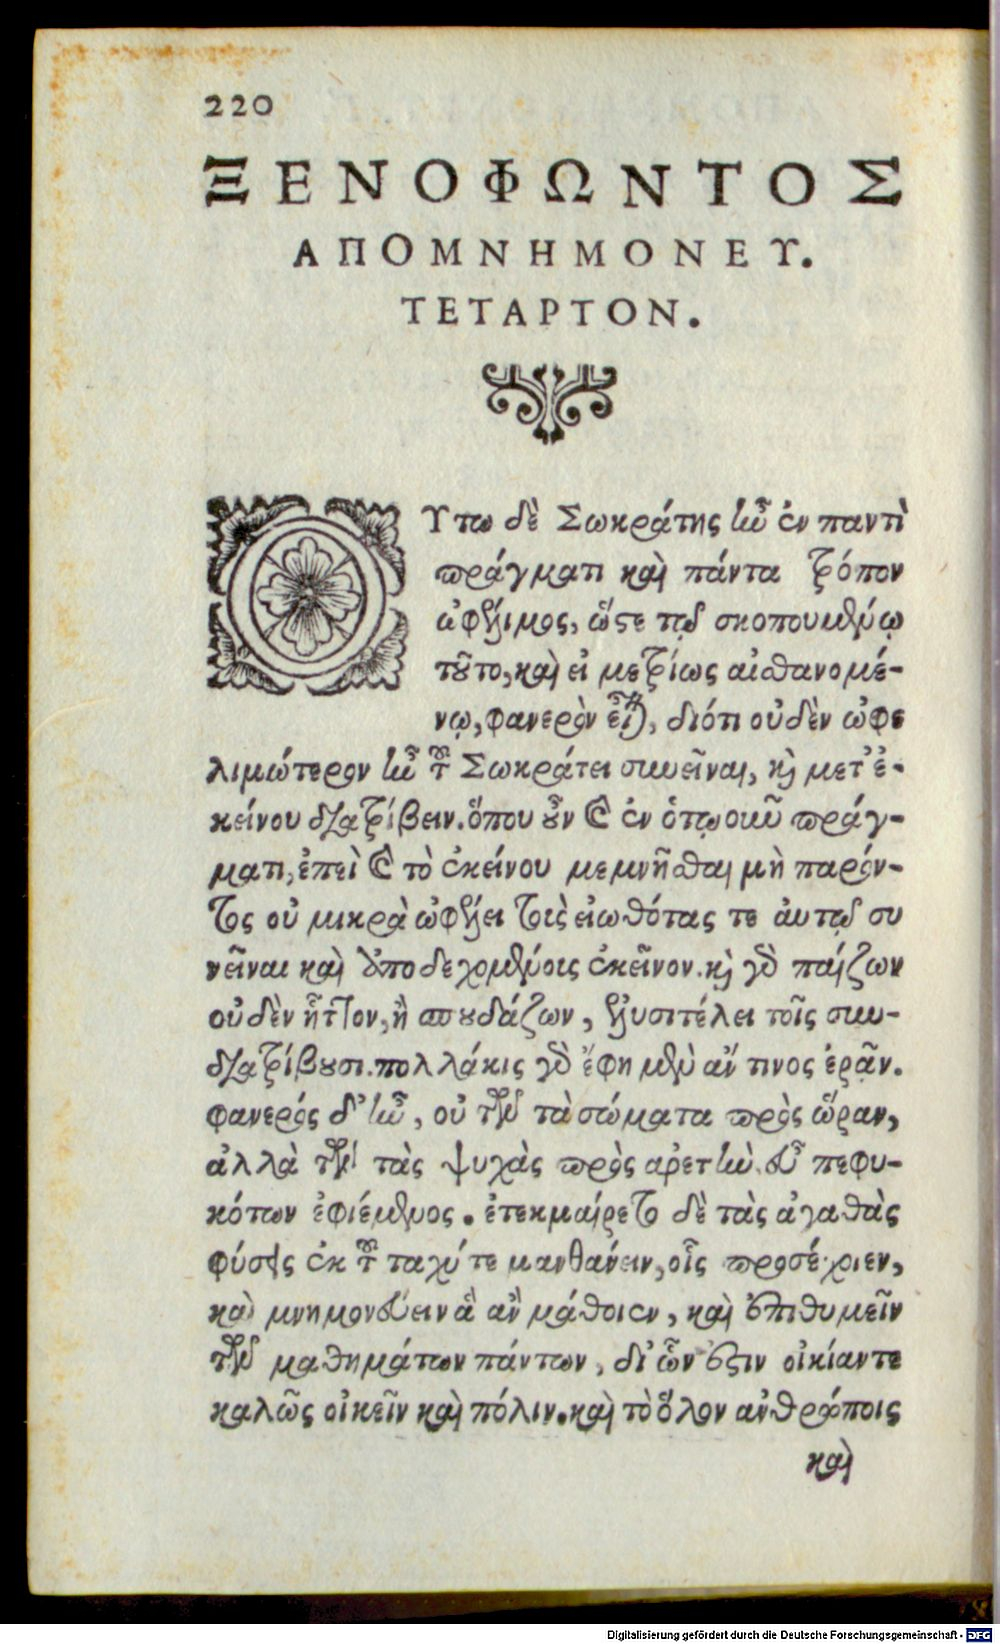 220
ΞΕΝΟΦΩΝΤΟΣ
ΑΠΟΜΝΗΜΟΝΕΥ.
ΤΕΤΑΡΤΟΝ.
ΟΥτω δὲ Σωκράτης ἦν ἐν παντὶ
πράγματι καὶ πάντα τρόπον
ὠφέλιμος, ὥστε τῷ σκοπουμένῳ
τοῦτο, καὶ εἰ μετρίως αἰσθανομέ-
νῳ, φανερὸν εἶναι, διότι οὐδὲν ὠφε
λιμώτερον ἦν τοῦ Σωκράτει συνεῖναι, καὶ μετ' ἐ-
κείνου διατρίβειν. ὅπου οὖν καὶ ἐν ὁτῳοῦν πράγ-
ματι, ἐπεὶ καὶ τὸ ἐκείνου μεμνῆσθαι μὴ παρόν-
τος οὐ μικρὰ ὠφέλει τοὺς εἰωθότας τε αὐτῷ συ
νεῖναι καὶ ὑποδεχομένους ἐκεῖνον. καὶ γὰρ παίζων
οὐδὲν ἧττον, ἢ σπουδάζων, ἐλυσιτέλει τοῖς συν-
διατρίβουσι. πολλάκις γὰρ ἔφη μὲν ἄν τινος ἐρᾶν.
φανερός δ' ἦν, οὐ τῶν τὰ σώματα πρὸς ὥραν,
ἀλλὰ τῶν τὰς ψυχὰς πρὸς ἀρετὴν εὖ πεφυ-
κότων ἐφιέμενος. ἐτεκμαίρετο δὲ τὰς ἀγαθὰς
φύσεις ἐκ τοῦ ταχύ τε μανθάνειν, οἷς προσέχοιεν,
καὶ μνημονεύειν ἃ ἂν μάθοιεν, καὶ ἐπιθυμεῖν
τῶν μαθημάτων πάντων, δι' ὧν ἔστιν οἰκίαν τε
καλῶς οἰκεῖν καὶ πόλιν. καὶ τὸ ὅλον ἀνθρώποις
καὶ
Digitalisierung gefördert durch die Deutsche Forschungsgemeinschaft - DFG